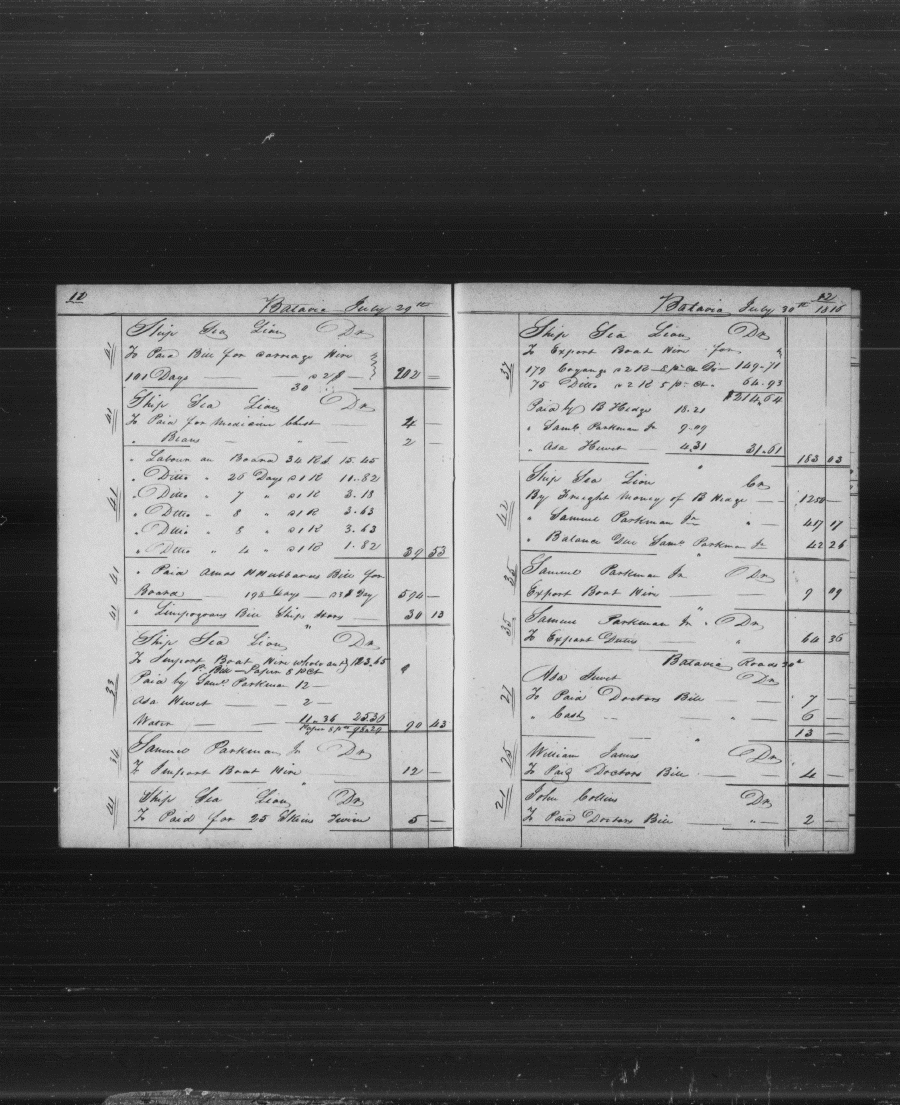 12
Batavia July 29th
41 Ship Sea Lion Dr
To Paid Bill for Carriage Hire
101 Days — — a 2 $ — 202 —
30
41 Ship Sea Lion Dr
To Paid for Medicine Chest — 4 —
" Beans — " — 2 —
" Labour on Board 34 R.d. 15.45
41 " Ditto " 26 Days a 1 R 11.82
" Ditto " 7 " a 1 R 3.18
" Ditto " 8 " a 1 R 3.63
" Ditto " 8 " a 1 R 3.63
" Ditto " 4 " a 1 R 1.82 39 53
41 " Paid Amos H Hubbards Bill for
Board — 198 Days — a 3 $ Day 594 —
41 " Bill Ships Stores — 30 13
Ship Sea Lion Dr
To Import Boat Hire 123.65
Pr. Bill — Paper 8 P Ct
33 Paid by Saml Parkman 12 —
Asa Hewet — 2 —
Water — 11.36 25.36
Paper 8 P Ct 98.29 90 43
34 Samuel Parkman Jr Dr
To Import Boat Hire — 12 —
41 Ship Sea Lion Dr
To Paid for 25 Skeins Twine 5 —
12
Batavia July 30th 1816
37 Ship Sea Lion Dr
To Export Boat Hire for
179 Coyangs a 2 R — 5 P Ct Dis — 149.71
75 Ditto a 2 R 5 P Ct " 64.93
$214.64
Paid by B Hedge 18.21
" Saml Parkman Jr 9.09
" Asa Hewet — 4.31 31.61 183 03
Ship Sea Lion Cr
42 By Freight Money of B Hedge — 1250 —
" Samuel Parkman Jr " — 417 17
" Balance Due Saml Parkman Jr 42 26
35 Samuel Parkman Jr Dr
Export Boat Hire — 9 09
35 Samuel Parkman Jr " Dr
To Export Duties — " 64 36
Batavia Roads 30th
27 Asa Hewet Dr
To Paid Doctors Bill — 7 —
" Cash — 6 —
13 —
25 William James Dr
To Paid Doctors Bill — 4 —
21 John Collins Dr
To Paid Doctors Bill — " — 2 —